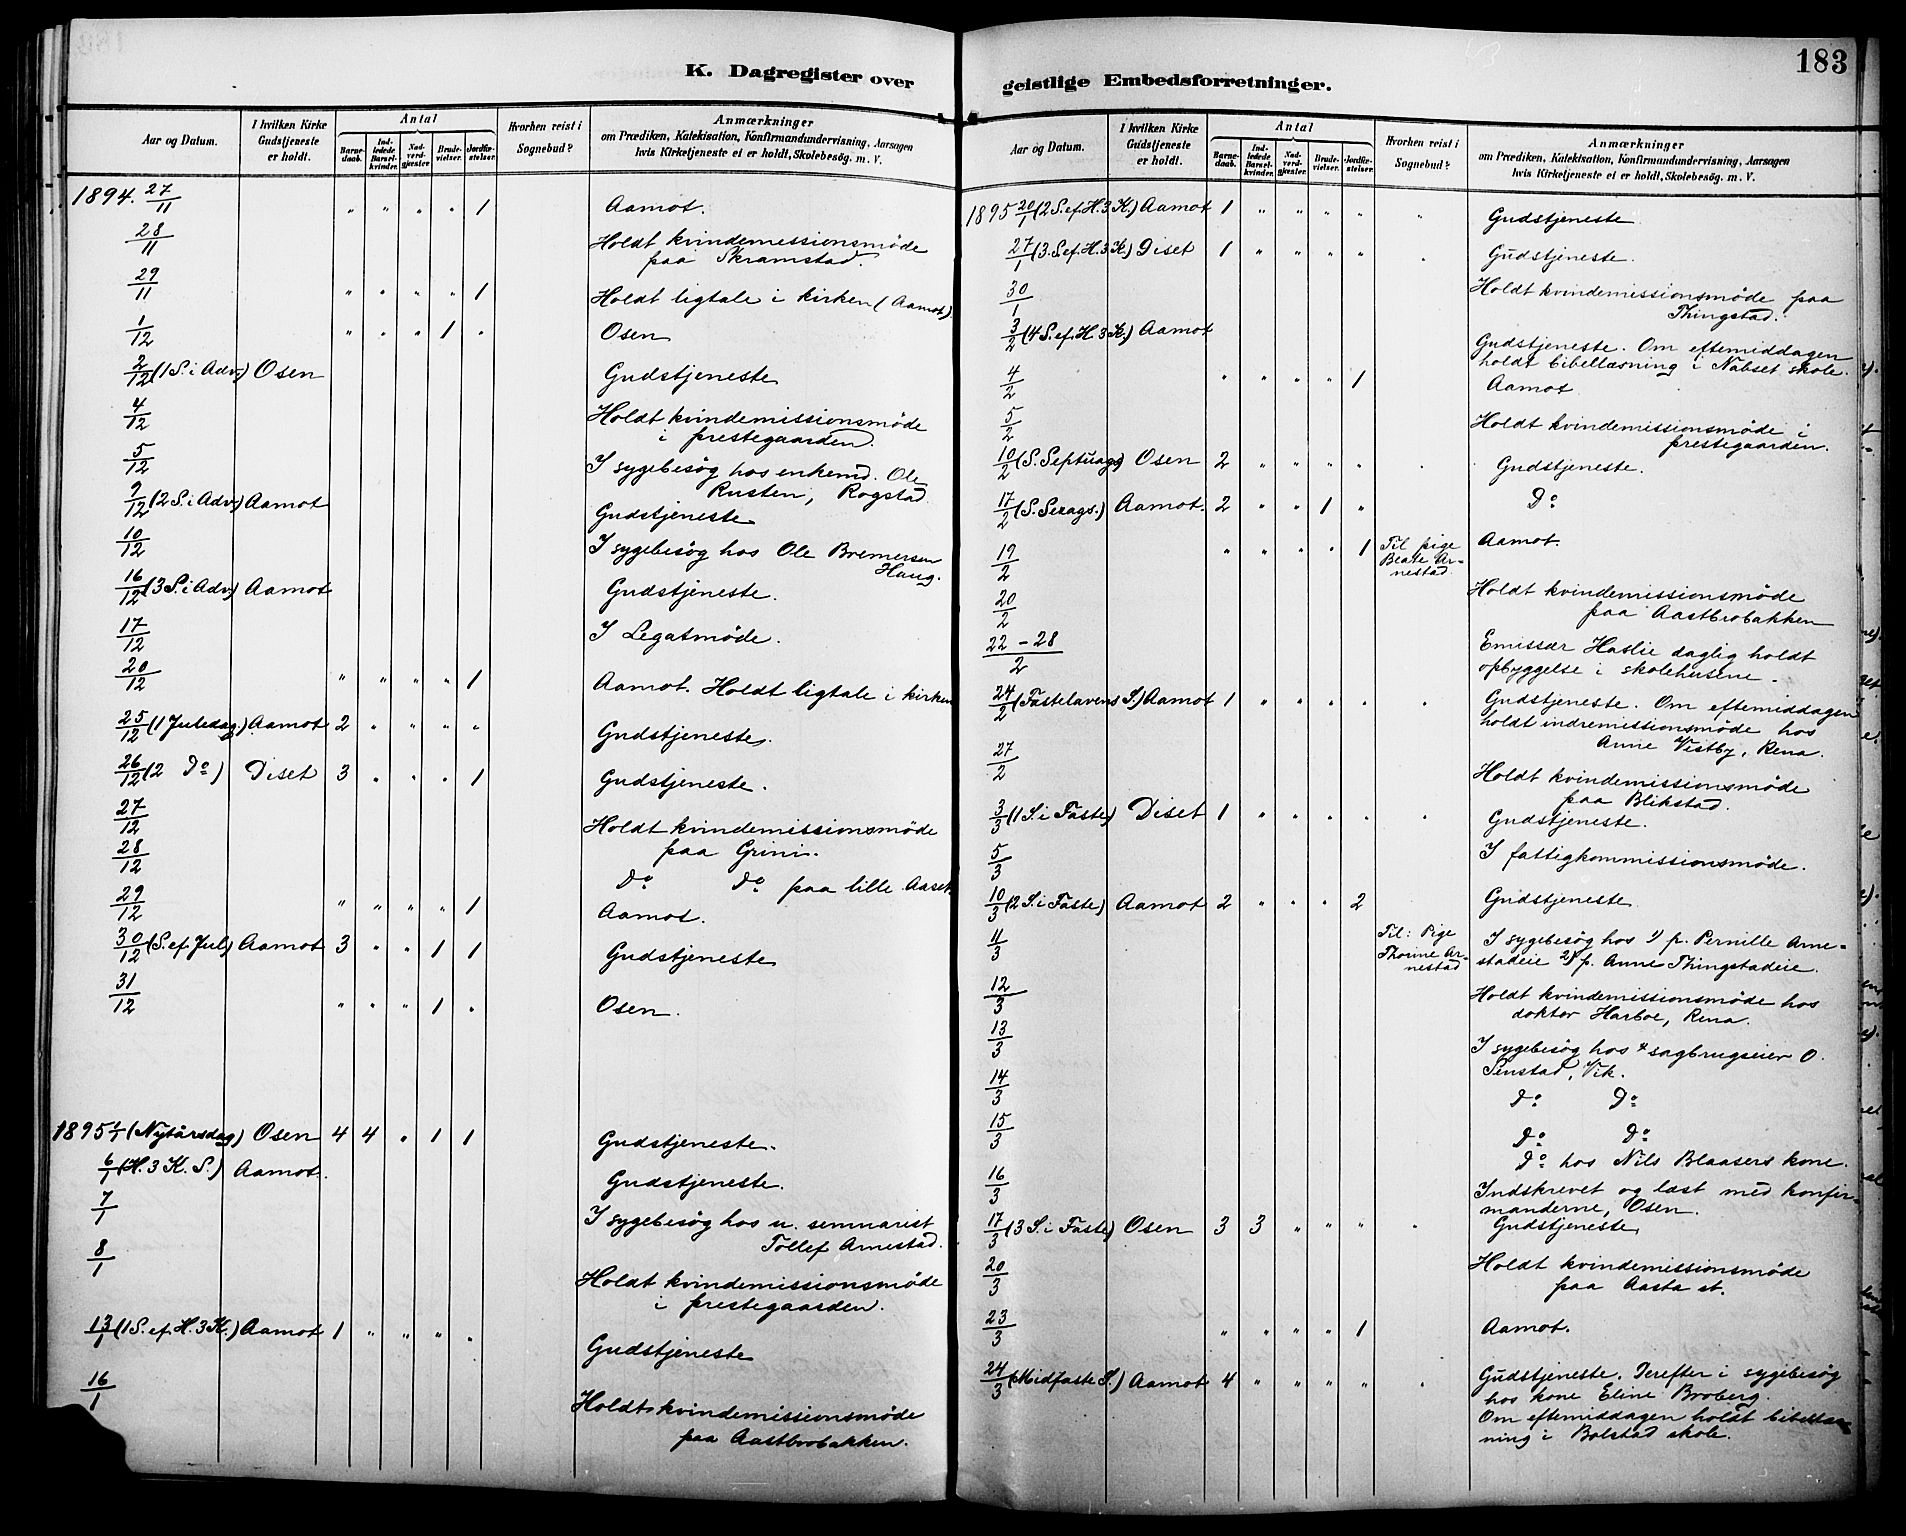 183
K. Dagregister over geistlige Embedsforretninger.
Aar og Datum. | I hvilken Kirke Gudstjeneste er holdt. | Antal: Barne-daab. | Ind-ledede Barsel-kvinder. | Nad-verd-gjester. | Brude-vielser. | Jordfæ-stelser. | Hvorhen reist i Sognebud? | Anmærkninger om Prædiken, Katekisation, Konfirmandundervisning, Aarsagen hvis Kirketjeneste ei er holdt, Skolebesøg. m. V.
1894. 27/11 " " " " 1 Aamot.
28/11 Holdt kvindemissionsmøde
paa Skramstad.
29/11 " " " " 1 Holdt ligtale i kirken (Aamot)
1/12 " " " 1 " Osen
2/12 (1 S. i Adv.) Osen Gudstjeneste
4/12 Holdt kvindemissionsmøde
i prestegaarden.
5/12 I sygebesøg hos enkemd. Ole
Rusten, Rogstad.
9/12 (2 S. i Adv.) Aamot Gudstjeneste
10/12 I sygebesøg hos Ole Bremersen
Haug.
16/12 (3 S. i Adv.) Aamot Gudstjeneste.
17/12 I Legatmøde.
20/12 " " " " 1 Aamot. Holdt ligtale i kirken
25/12 (1 Juledag.) Aamot 2 " " " " Gudstjeneste.
26/12 (2 Do) Diset 3 " " " 1 Gudstjeneste.
27/12 Holdt kvindemissionsmøde
paa Grini.
28/12 Do Do paa lille Aaset
29/12 " " " " 1 Aamot.
30/12 (S. ef. Jul) Aamot 3 " " 1 1 Gudstjeneste
31/12 " " " 1 " Osen.
1895 1/1 (Nytårsdag) Osen 4 4 " 1 1 Gudstjeneste.
6/1 (H. 3 K. S.) Aamot. Gudstjeneste.
7/1 I sygebesøg hos u. semnarist
Tollef Arnestad.
8/1 Holdt kvindemissionsmøde
i prestegaarden.
13/1 (1 S. ef. H. 3 K.) Aamot 1 " " " " Gudstjeneste
16/1 Holdt kvindemissionsmøde
paa Aastbrobakken.
Aar og Datum. | I hvilken Kirke Gudstjeneste er holdt. | Antal: Barne-daab. | Ind-ledede Barsel-kvinder. | Nad-verd-gjester. | Brude-vielser. | Jordfæ-stelser. | Hvorhen reist i Sognebud? | Anmærkninger om Prædiken, Katekisation, Konfirmandundervisning, Aarsagen hvis Kirketjeneste ei er holdt, Skolebesøg. m. V.
1895 20/1 (2 S. ef. H. 3 K.) Aamot 1 " " " " " Gudstjeneste
27/1 (3. S ef. H. 3 K.) Diset 1 " " " " " Gudstjeneste.
30/1 Holdt kvindemissionsmøde paa
Thingstad.
3/2 (4 S. ef. H. 3 K.) Aamot Gudstjeneste. Om eftemiddagen
holdt bibellæsning i Nabset skole.
4/2 " " " " 1 Aamot
5/2 Holdt kvindemissionsmøde i
prestegaarden.
10/2 (S. Septuag) Osen 2 " " " " " Gudstjeneste.
17/2 (S. Sexags.) Aamot. 2 " " 1 " Do
19/2 " " " " 1 Til pige Beate Ar=nestad. Aamot.
20/2 Holdt kvindemissionsmøde
paa Aastbrobakken
22-28/2 Emissær Haslie daglig holdt
opbyggelse i skolehusene.
24/2 (Fastelavens S.) Aamot 1 " " " " " Gudstjeneste. Om eftemiddagen
holdt indremissionsmøde hos
Anne Vestby, Rena.
27/2 Holdt kvindemissionsmøde
paa Blikstad.
3/3 (1 S. i Faste) Diset 1 " " " " " Gudstjeneste.
5/3 I fattigkommissionsmøde.
10/3 (2 S. i Faste) Aamot 2 " " " 2 Gudstjeneste
11/3 Til: Pige Thorine Ar=nestad I sygebesøg hos 1) p. Pernille Arne=
stadeie 2) p. Anne Thingstadeie.
12/3 Holdt kvindemissionsmøde hos
doktor Harboe, Rena.
13/3 I sygebesøg hos sagbrugseier O.
Senstad, Vik.
14/3 Do Do
15/3 Do Do
Do hos Nils Blaasers kone.
16/3 Indskrevet og læst med konfir=
manderne, Osen.
17/3 (3 S. i Faste) Osen 3 3 " " " " Gudstjeneste
20/3 Holdt kvindemissionsmøde
paa Aasta st.
23/3 " " " " 1 Aamot.
24/3 (Midfaste S.) Aamot 4 " " " " " Gudstjeneste. Derefter i sygebesøg
hos kone Eline Broberg.
Om eftemiddagen holdt bibellæs=
ning i Bolstad skole.